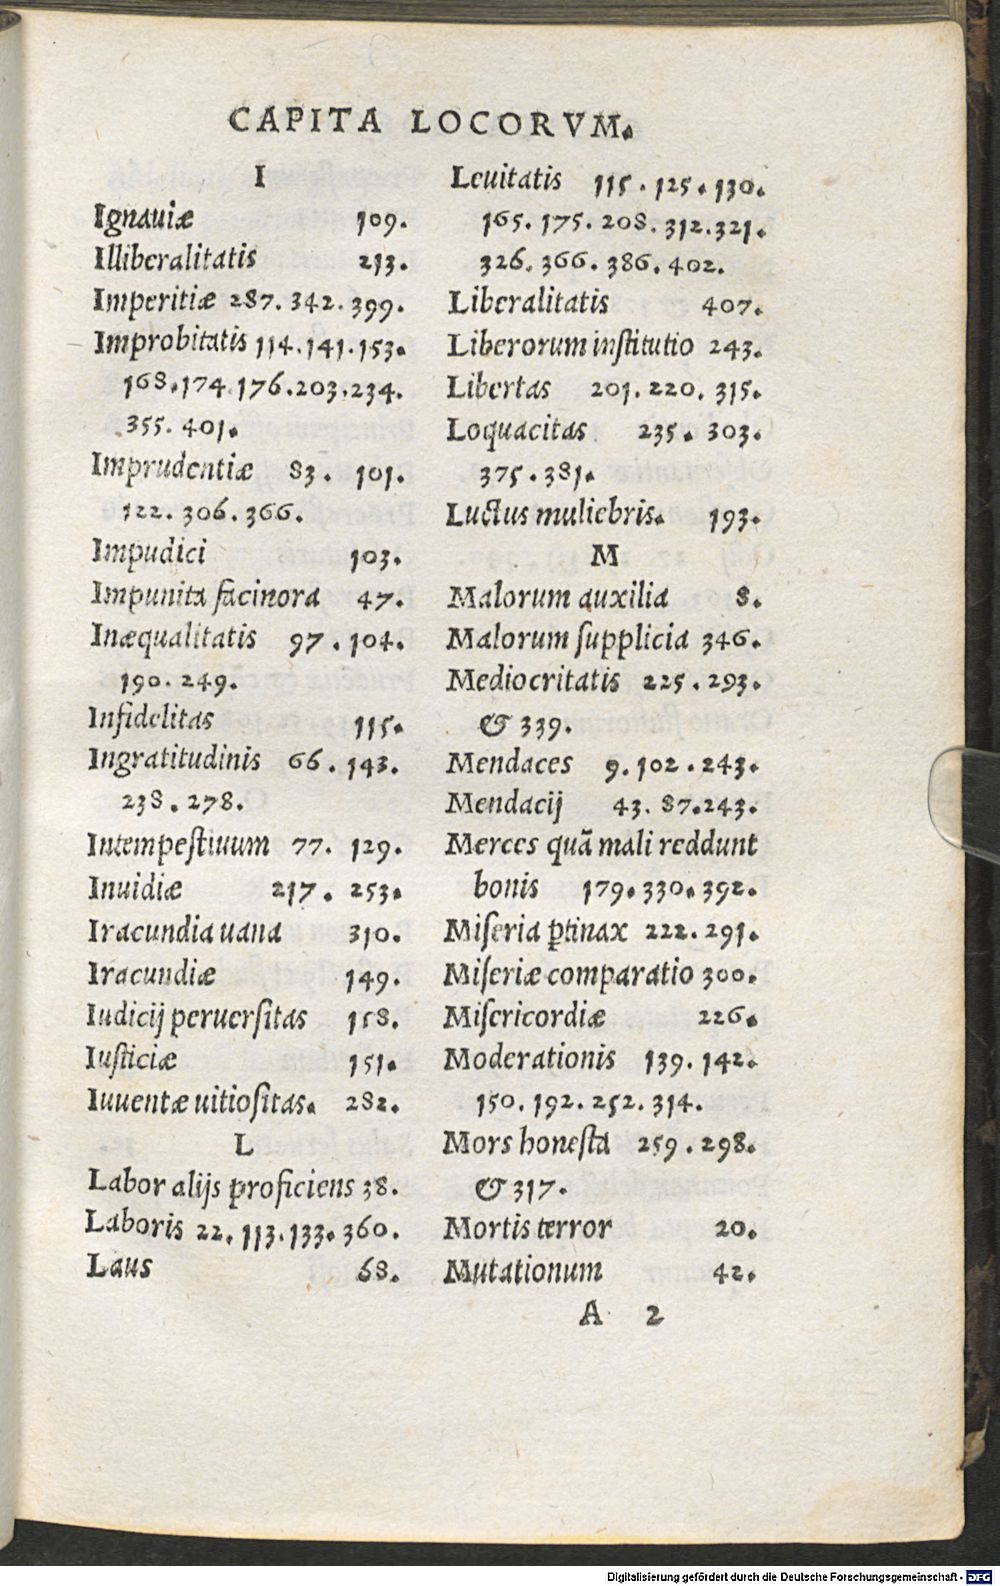 CAPITA LOCORVM.
I
Ignauiæ 109.
Illiberalitatis 213.
Imperitiæ 287. 342. 399.
Improbitatis 114. 141. 153.
168. 174. 176. 203. 234.
355. 401.
Imprudentiæ 83. 101.
122. 306. 366.
Impudici 103.
Impunita facinora 47.
Inæqualitatis 97. 104.
190. 249.
Infidelitas 115.
Ingratitudinis 66. 143.
238. 278.
Intempestiuum 77. 129.
Inuidiæ 217. 253.
Iracundia uana 310.
Iracundiæ 149.
Iudicij peruersitas 158.
Iusticiæ 151.
Iuuentæ uitiositas. 282.
L
Labor alijs ꝓficiens 38.
Laboris 22. 113. 133. 360.
Laus 68.
Leuitatis 115. 125. 130.
165. 175. 208. 312. 321.
326. 366. 386. 402.
Liberalitatis 407.
Liberorum institutio 243.
Libertas 201. 220. 315.
Loquacitas 235. 303.
375. 381.
Luctus muliebris. 193.
M
Malorum auxilia 8.
Malorum supplicia 346.
Mediocritatis 225. 293.
& 339.
Mendaces 9. 102. 243.
Mendacij 43. 87. 243.
Merces quā mali reddunt
bonis 179. 330. 392.
Miseria ꝑtinax 222. 291.
Miseriæ comparatio 300.
Misericordiæ 226.
Moderationis 139. 142.
150. 192. 252. 314.
Mors honesta 259. 298.
& 317.
Mortis terror 20.
Mutationum 42.
A 2
Digitalisierung gefördert durch die Deutsche Forschungsgemeinschaft - DFG